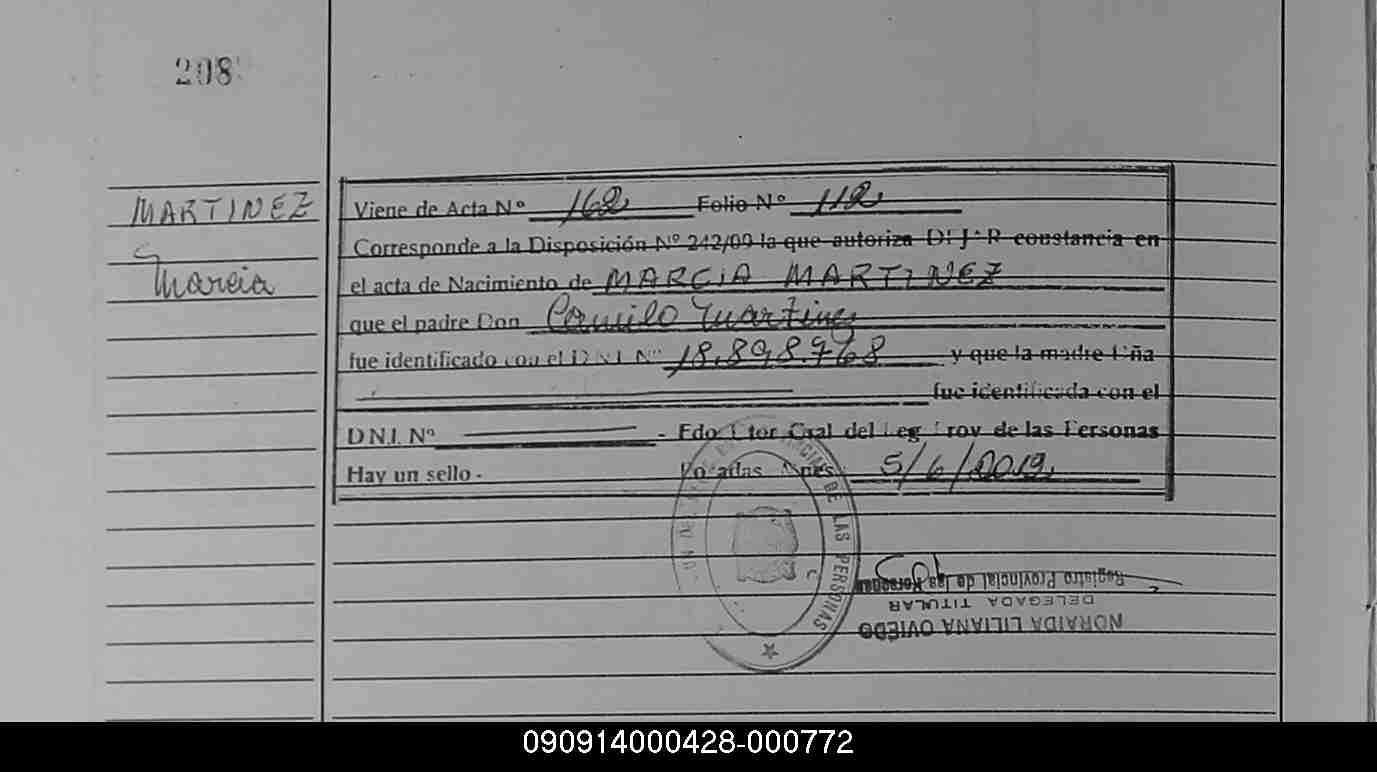 208
MARTINEZ
Marcia
Viene de Acta Nº 162 Folio Nº 112
Corresponde a la Disposición Nº 242/09 la que autoriza DEJAR constancia en
el acta de Nacimiento de MARCIA MARTINEZ
que el padre Don Camilo Martinez
fue identificado con el D.N.I. Nº 18.898.768 y que la madre Dña
fue identificada con el
D.N.I. Nº - Fdo Dtor Gral del Reg Prov de las Personas
Hay un sello - Posadas Mnes 5/6/2019
DE LAS PERSONAS
Registro Provincial de las Personas
DELEGADA TITULAR
NORAIDA LILIANA OVIEDO
090914000428-000772